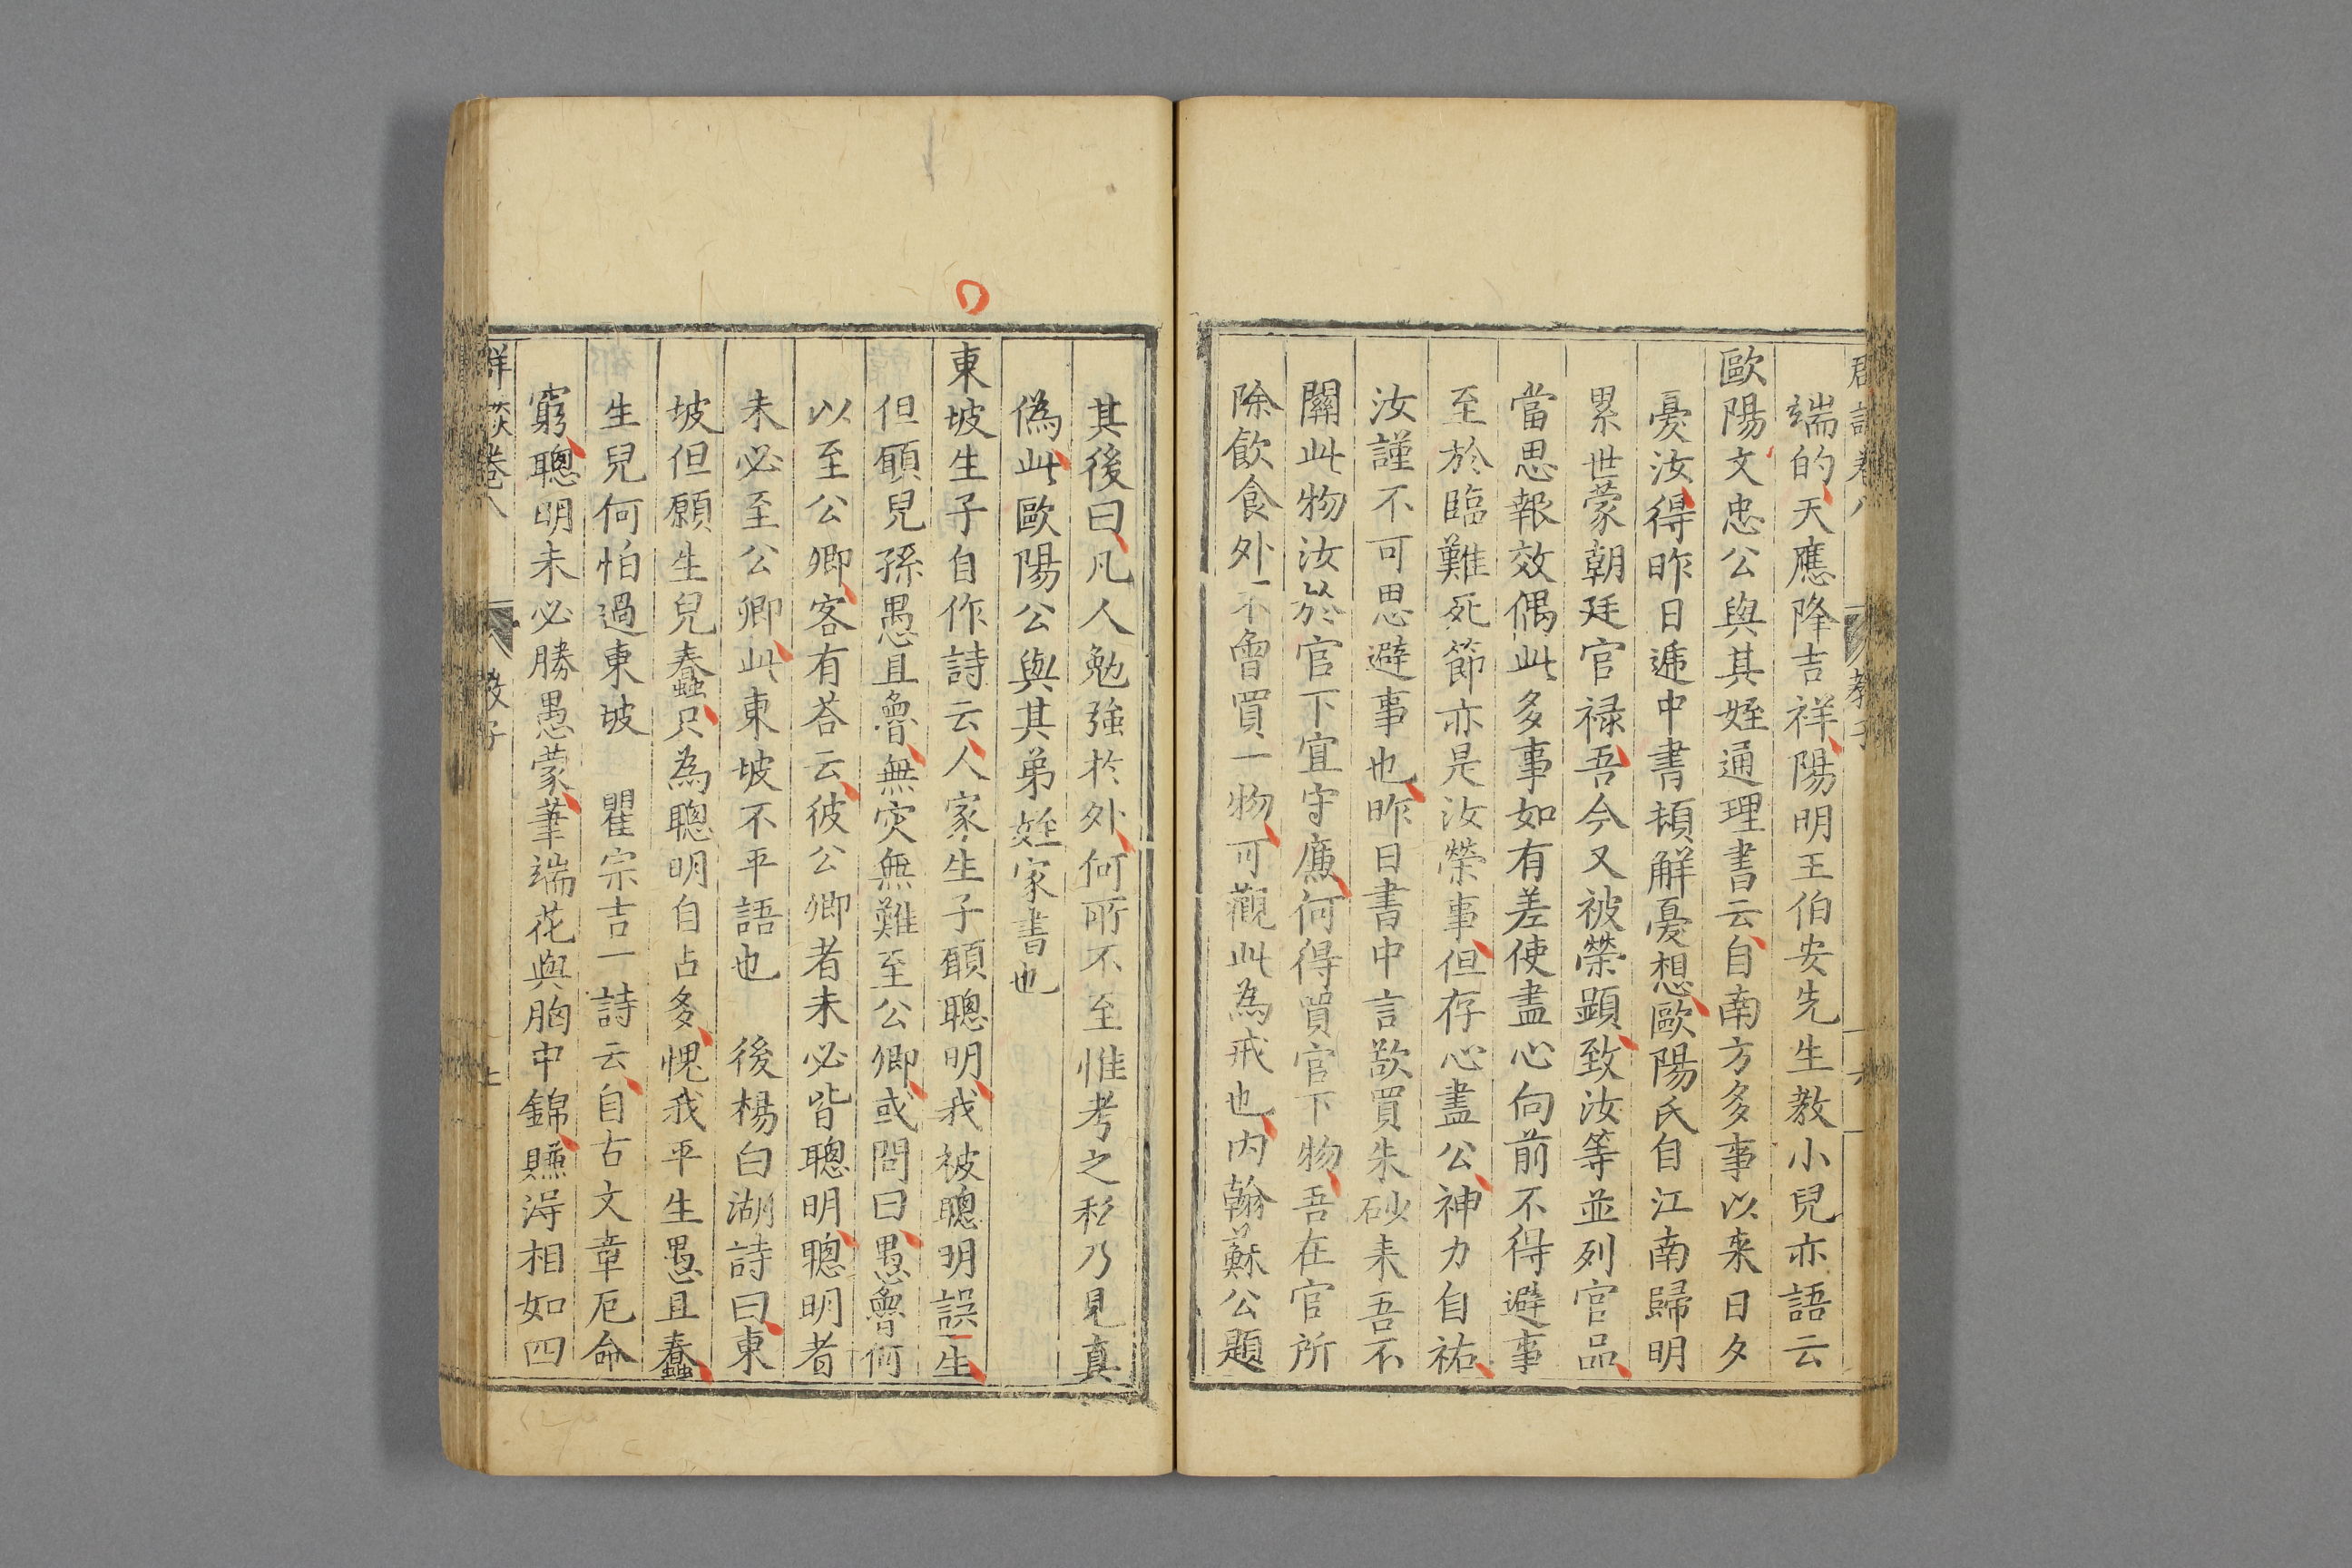 端的天應降吉祥陽明王伯安先生教小兒亦語云
歐陽文忠公與其姪通理書云自南方多事以来日夕
憂汝得昨日遞中書頓解憂想歐陽氏自江南歸明
累世蒙朝廷官禄吾今又被榮顕致汝等並列官品
當思報效偶此多事如有差使盡心向前不得避事
至於臨難死節亦是汝榮事但存心盡公神力自祐
汝謹不可思避事也昨日書中言欲買朱砂来吾不
闕此物汝於官下宜守廉何得買官下物吾在官所
除飲食外不曾買一物可觀此為戒也内翰蘇公題
其後曰凡人勉強於外何所不至惟考之私乃見真
偽此歐陽公與其弟姪家書也
東坡生子自作詩云人家生子願聰明我被聰明誤一生
但願兒孫愚且魯無灾無難至公卿或問曰愚魯何
以至公卿客有荅云彼公卿者未必皆聰明聰明者
未必至公卿此東坡不平語也　後楊白湖詩曰東
坡但願生兒蠢只為聰明自占多愧我平生愚且蠢
生兒何怕過東坡　瞿宗吉一詩云自古文章厄命
窮聰明未必勝愚蒙筆端花與胸中錦賺淂相如四
群談卷八　教子